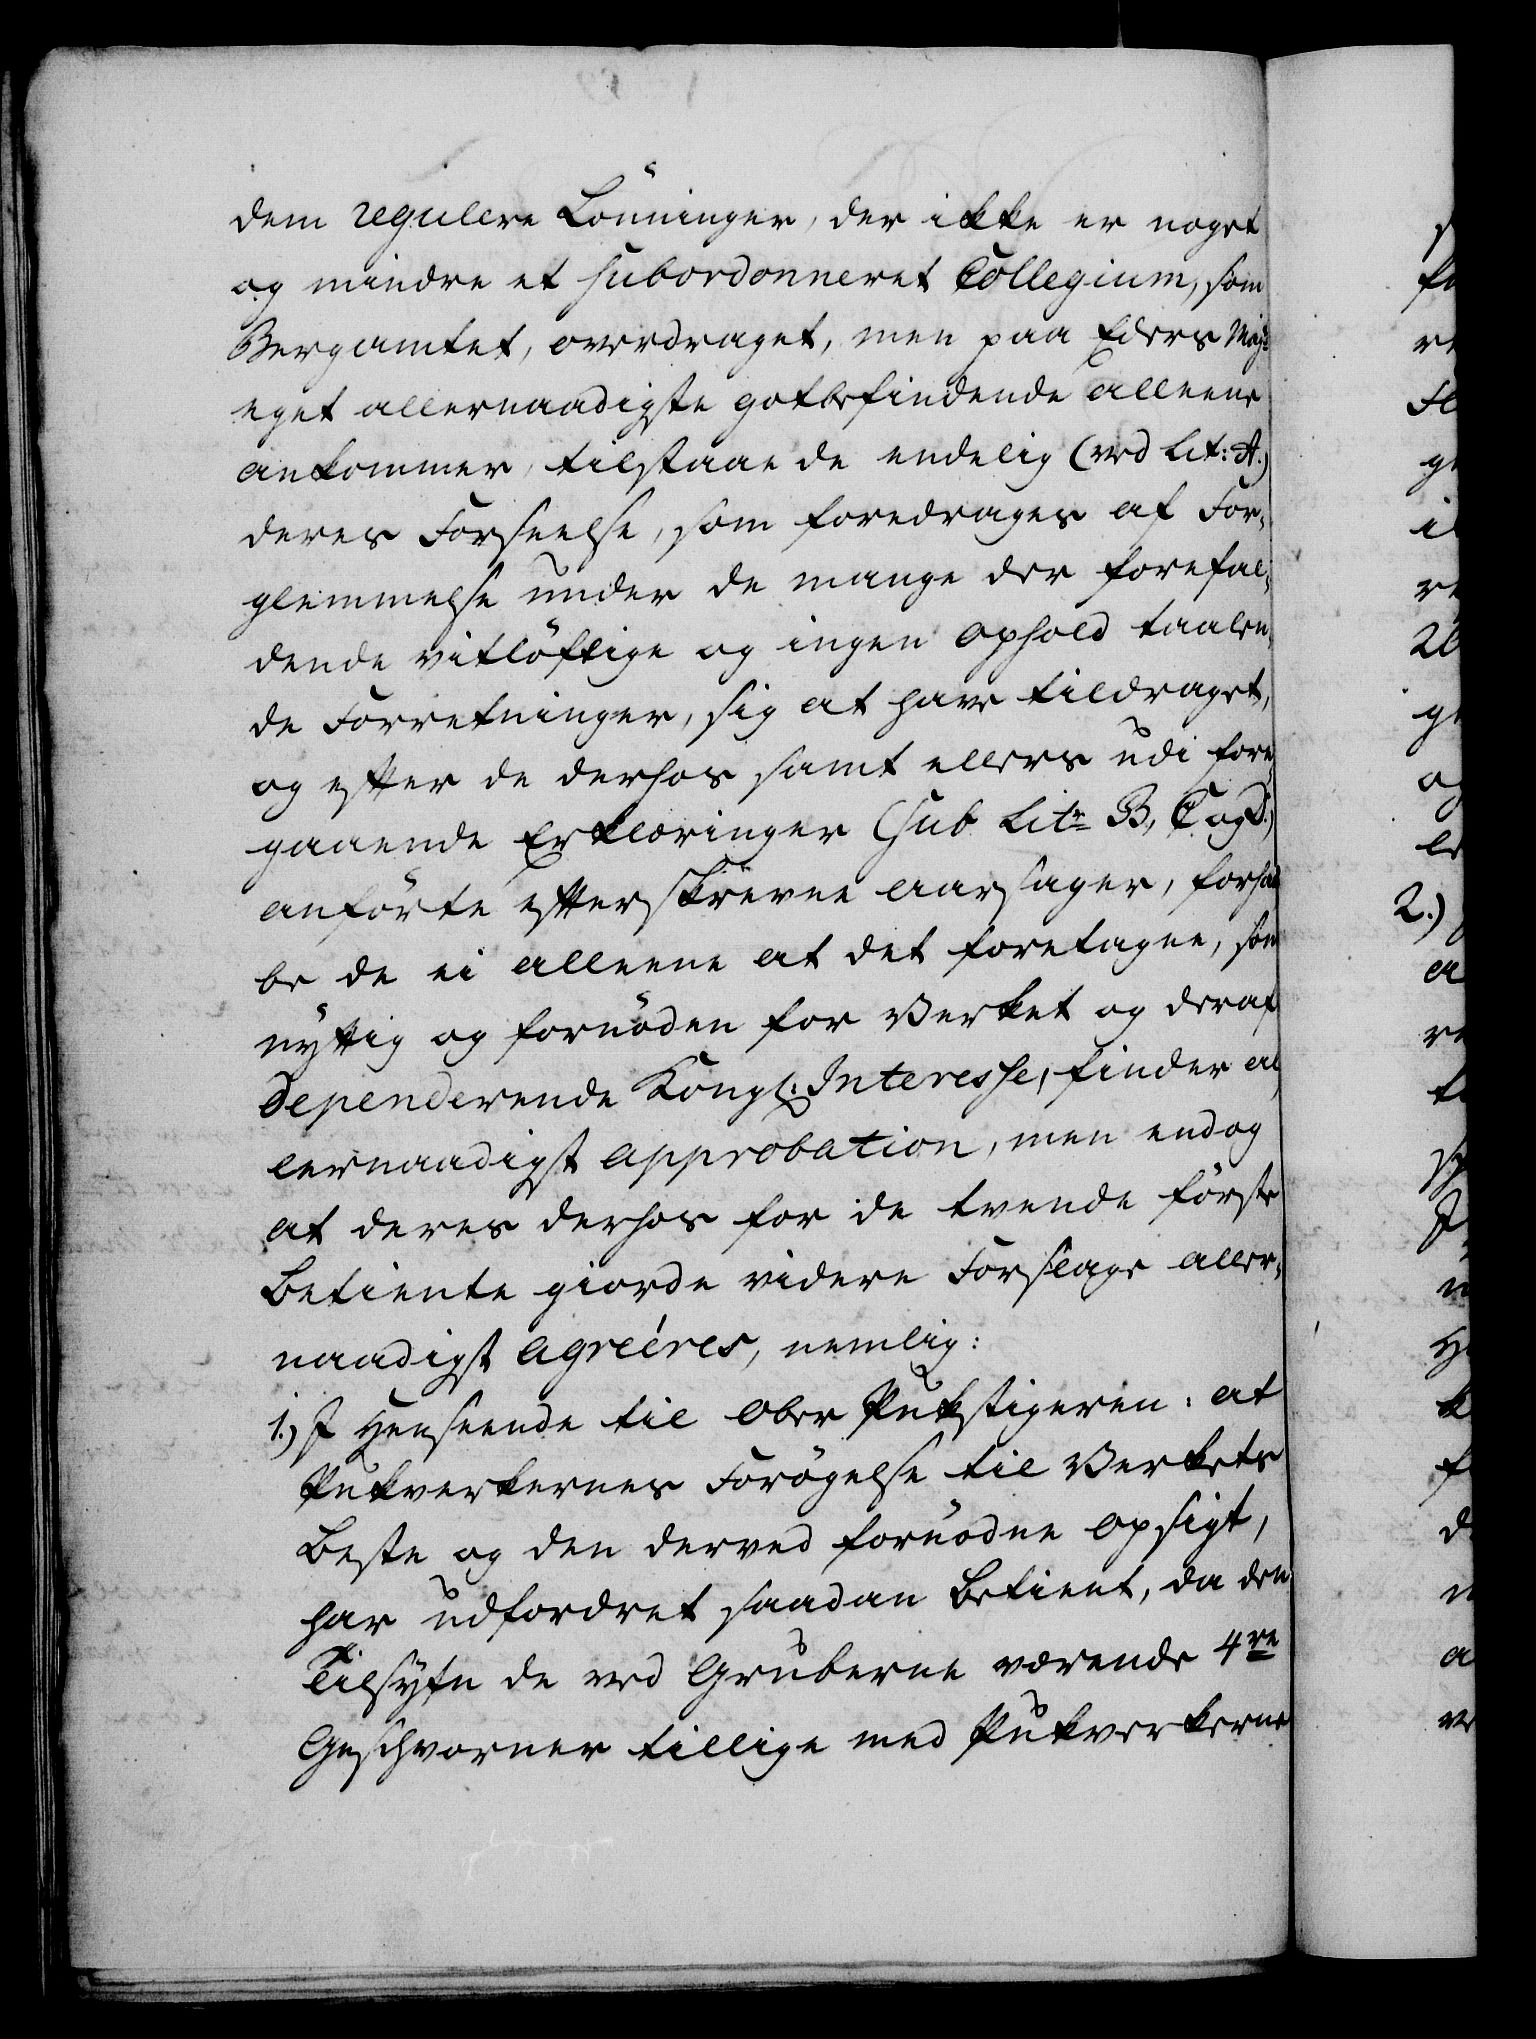 dem regulere Lönninger, der ikke er noget
og mindre et subordonneret Collegium, som
Bergamtet, overdraget, men paa Eders Mayts
eget allernaadigste gotbefindende alleene
ankommer, tilstaae de endelig (ved Lit: A.)
deres Forseelse, som foredrages af For-
glemmelse under de mange der forefal-
dende vitløftige og ingen Ophold taalen-
de Forretninger, sig at have tildraget,
og efter de derhos samt ellers udi fore-
gaaende Erklæringer (sub Litr B, C og D.)
anførte efterskrevne aarsager, forhaa-
be de ei alleene at det foretagne, som
nyttig og fornøden for Verket og deraf
dependerende Kongl. Interesse, finder al-
lernaadigst approbation, men endog
at deres derhos for de tvende første
Betiente giorde videre Forslage aller-
naadigst agreéres, nemlig:
1.) I Henseende til Ober Pukstigeren: at
Pukverkernes Forøgelse til Verkets
Beste og den derved fornødne Opsigt,
har udfordret saadan Betient, da den
Tilsyn de ved Gruberne værende 4re
Geschvorner tillige med Pukverkerne
2.)